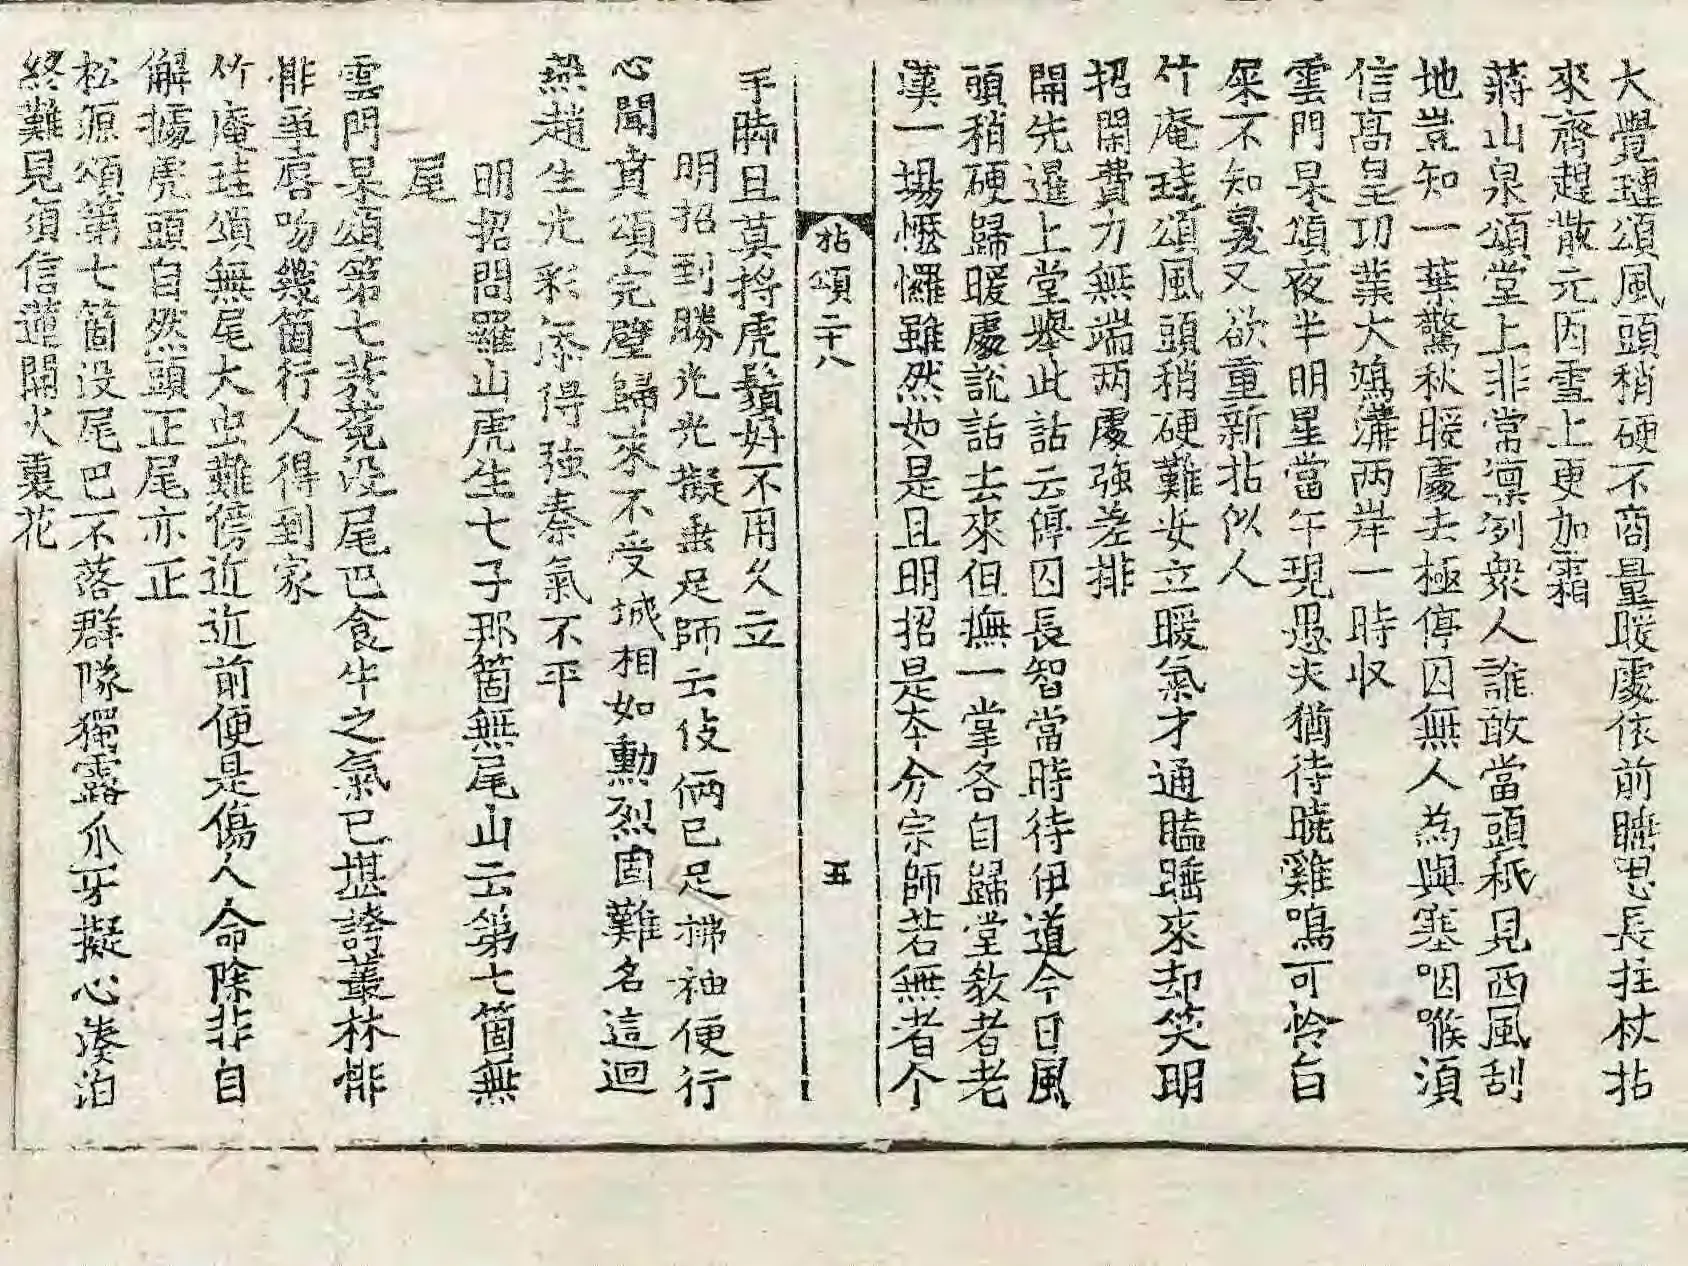 大覺璉頌風頭稍硬不商量暖處依前瞌思長拄杖拈
來齊趕散元因雪上更加霜
蔣山泉頌堂上非常凛冽衆人誰敢當頭秖見西風刮
地豈知一葉驚秋暖處去極停囚無人為與塞咽喉湏
信髙皇功業大鴻溝两岸一時収
雲門杲頌夜半明星當午現愚夫猶待曉雞鳴可怜白
屎不知裊又欲重新拈似人
竹庵珪頌風頭稍硬難安立暖氣才通瞌睡來却笑明
招閑費力無端两處強差排
開先暹上堂舉此話云停囚長智當時待伊道今日風
頭稍硬歸暖處說話去來但撫一掌各自歸堂敎者老
漢一場懡㦬雖然如是且明招是本分宗師若無者个
拈頌二十八
五
手脚且莫捋虎鬚好不用久立
明招到勝光光擬垂足師云伎倆已足拂袖便行
心聞賁頌完璧歸來不受誠相如勳烈固難名這迴
燕趙生光彩添得強秦氣不平
明招問羅山虎生七子那箇無尾山云第七箇無
尾
雲門杲頌第七菸菟没尾巴食牛之氣已堪誇叢林俳
俳爭唇吻幾箇行人得到家
竹庵珪頌無尾大虫難傍近近前便是傷人命除非自
解據虎頭自然頭正尾亦正
松源頌第七箇没尾巴不落群隊獨露爪牙擬心湊泊
終難見須信蓮開火裏花